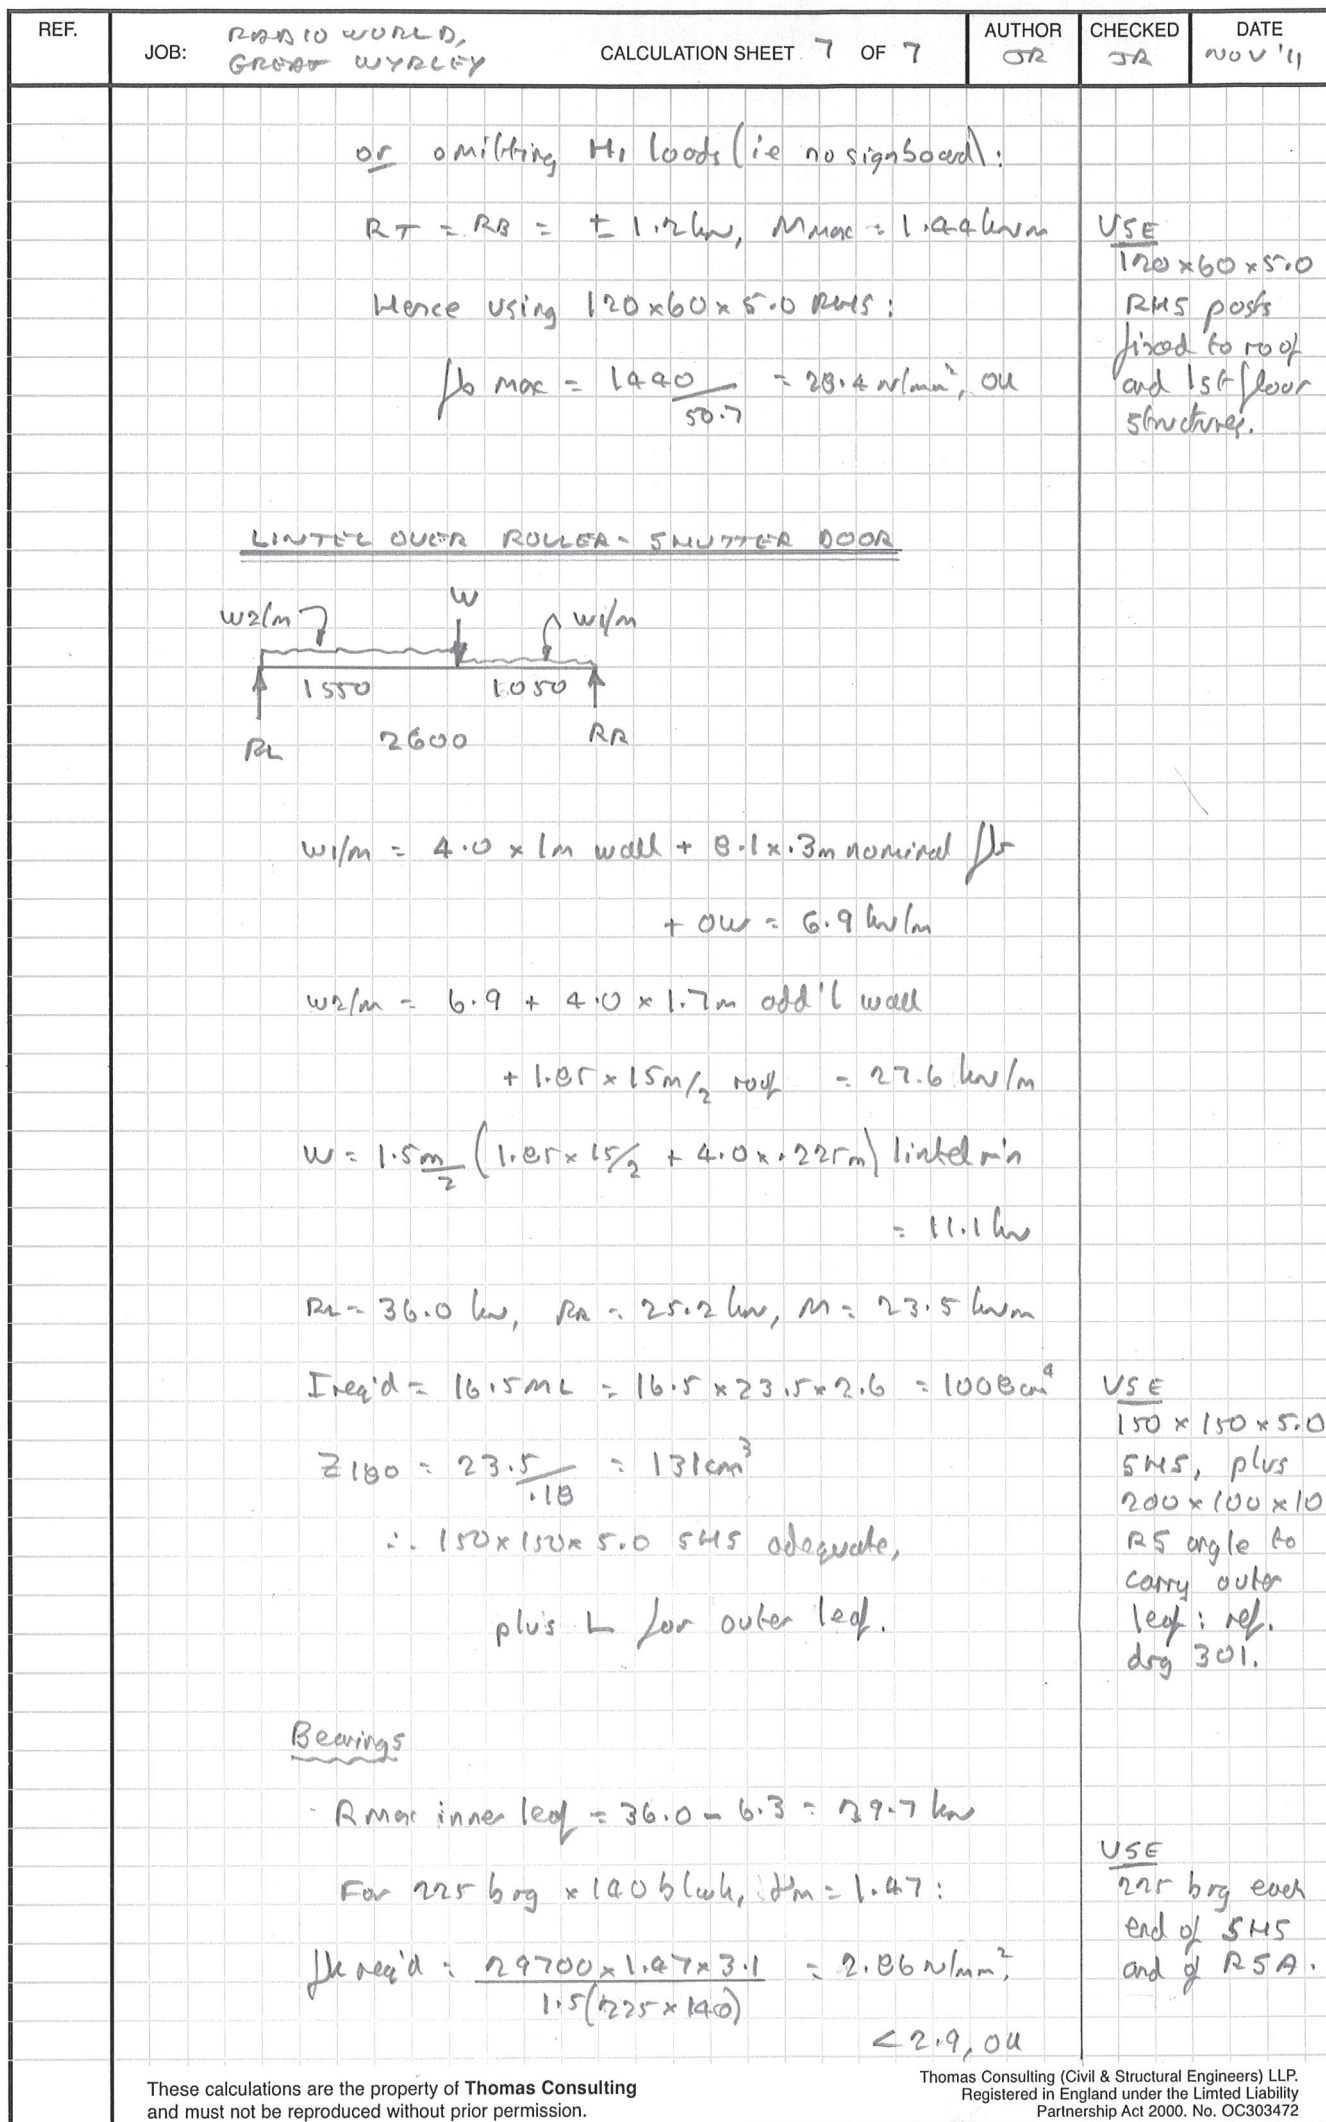 REF.
JOB: RADIO WORLD,
GREAT WYRLEY
CALCULATION SHEET 7 OF 7
AUTHOR
JR
CHECKED
JR
DATE
NOV '11
or omitting H1 loads (ie no signboard):
RT = RB = ± 1.2 kN, Mmax = 1.44 kNm
Hence using 120x60x5.0 RHS:
fb max = 1440/50.7 = 28.4 N/mm², OK
USE
120x60x5.0
RHS posts
fixed to roof
and 1st floor
structures.
LINTEL OVER ROLLER-SHUTTER DOOR
w2/m W w1/m
1550 1050
RL 2600 RR
w1/m = 4.0 x 1m wall + 8.1 x .3m nominal flr
+ OW = 6.9 kN/m
w2/m = 6.9 + 4.0 x 1.7m add'l wall
+ 1.85 x 15m/2 roof = 27.6 kN/m
W = 1.5m/2 (1.85 x 15/2 + 4.0 x .225m) lintel r'n
= 11.1 kN
RL = 36.0 kN, RR = 25.2 kN, M = 23.5 kNm
I req'd = 16.5ML = 16.5 x 23.5 x 2.6 = 1008cm⁴
Z180 = 23.5/.18 = 131cm³
∴ 150x150x5.0 SHS adequate,
plus L for outer leaf.
USE
150 x 150 x 5.0
SHS, plus
200 x 100 x 10
RS angle to
carry outer
leaf: ref.
drg 301.
Bearings
Rmax inner leaf = 36.0 - 6.3 = 29.7 kN
For 225 brg x 140 block, γm = 1.47:
fk req'd = 29700 x 1.47 x 3.1 / 1.5(225 x 140) = 2.86 N/mm²,
< 2.9, OK
USE
225 brg each
end of SHS
and of RSA.
These calculations are the property of Thomas Consulting
and must not be reproduced without prior permission.
Thomas Consulting (Civil & Structural Engineers) LLP.
Registered in England under the Limted Liability
Partnership Act 2000. No. OC303472